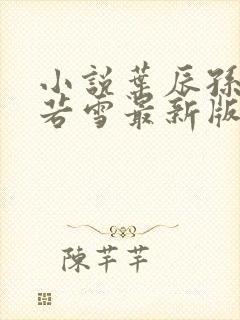 小說葉辰孫
若雪最新版
陳芊芊